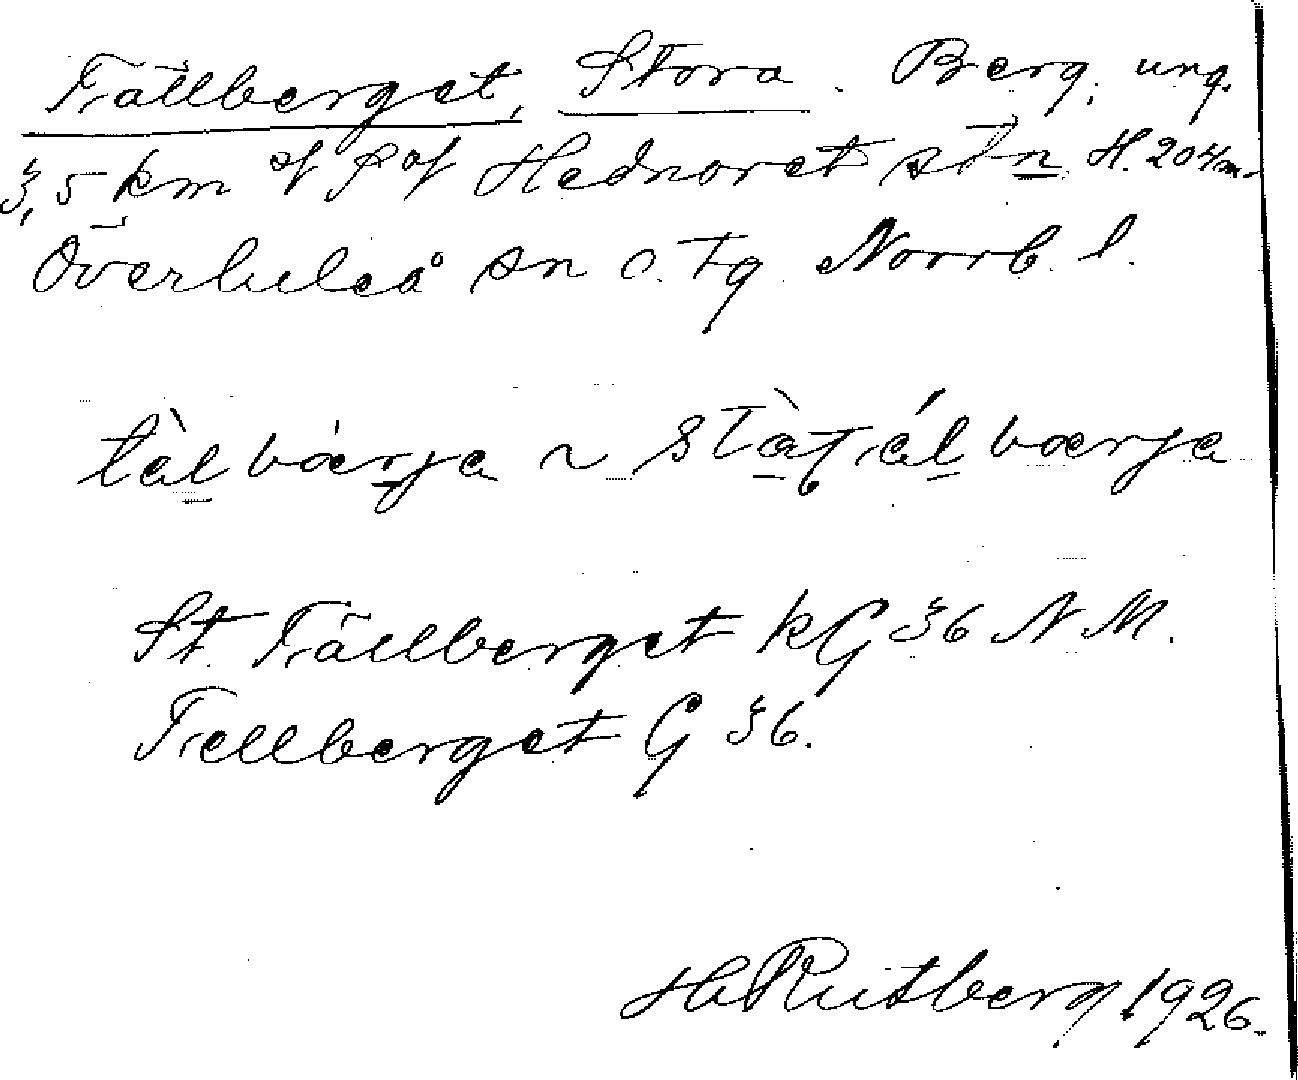 Tällberget, Stora. Berg, ung.
3,5 km of S of Hednoret stn H. 204 m.
Överluleå sn o. tg Norrb. l.
tàl bærja ~ stàt ál bærja
St. Tällberget kG 36 N M.
Tellberget G 36.
H Rutberg 1926.